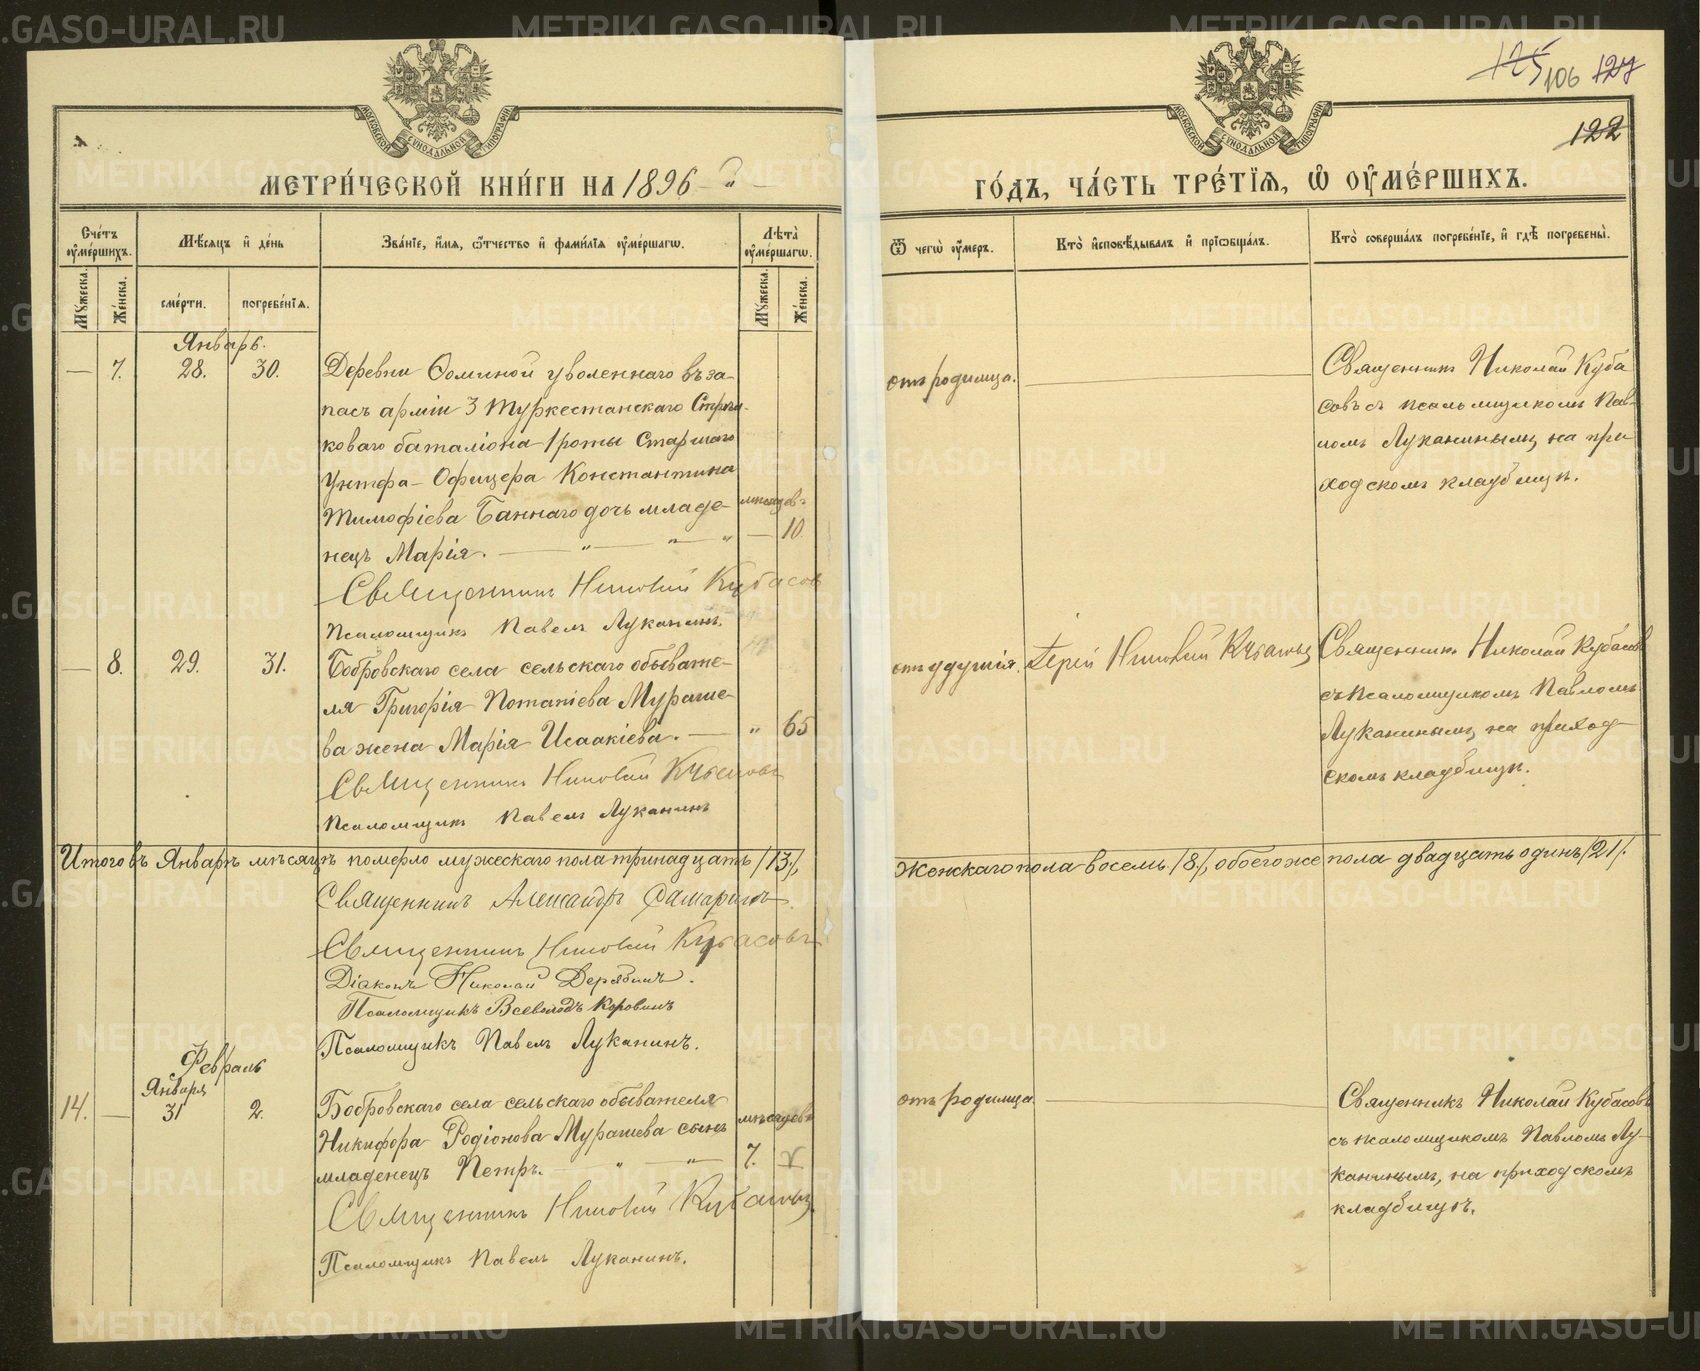 125 106 127
122
МЕТРИ́ЧЕСКОЙ КНИ́ГИ НА 1896
ГО́ДЪ, ЧА́СТЬ ТРЕ́ТІѦ, Ѡ ОУМЕ́РШИХЪ.
Сче́тъ оуме́ршихъ.
Мѣ́сяцъ и де́нь
Зва́ніе, и́мя, ѿтчество и фами́лія оуме́ршагѡ.
Лѣта̀ оуме́ршагѡ.
Ѿ чегѡ̀ оу́меръ.
Кто̀ исповѣ́дывалъ и пріѡбща́лъ.
Кто̀ соверша́лъ погребе́ніе, и гдѣ̀ погребены̀.
Му́жеска.
Же́нска.
сме́рти.
погребе́нїя.
Му́жеска.
Же́нска.
Январь.
— 7. 28. 30.
Деревни Соминой уволеннаго въ за-
пасъ арміи 3 Туркестанскаго Стрѣл-
коваго баталіона 1 роты Старшаго
Унтфа-Офицера Константина
Тимофіева Баннаго дочь младе-
нецъ Марія.
мѣсяцев
— 10.
Священникъ Николай Кубасов
Псаломщикъ Павелъ Луканинъ.
отъ родимца.
Священник Николай Куба
совъ съ псаломщикомъ Пав-
ломъ Луканинымъ, на при
ходскомъ кладбищѣ.
— 8. 29. 31.
Бобровскаго села сельскаго обывате-
ля Григорія Потапіева Мураше-
ва жена Марія Исаакіева. — " 65
Священникъ Николай Кубасовъ
Псаломщикъ Павелъ Луканинъ
отъ удушія.
Іерей Николай Кубасовъ
Священникъ Николай Кубасовъ
съ псаломщикомъ Павломъ
Луканинымъ, на приход-
скомъ кладбищѣ.
Итого въ Январѣ мѣсяцѣ померло мужескаго пола тринадцать /13/,
Женскаго пола восемь /8/, обоего же пола двадцать одинъ /21/.
Священникъ Александръ Самаринъ.
Священникъ Николай Кубасовъ
Діаконъ Николай Дерябинъ.
Псаломщикъ Всеволодъ Коровинъ
Псаломщикъ Павелъ Луканинъ.
Февраль
Января
14. — 31 2.
Бобровскаго села сельскаго обывателя
Никифора Родіонова Мурашева сынъ
младенецъ Петръ.
мѣсяцевъ
7.
Священникъ Николай Кубасовъ
Псаломщикъ Павелъ Луканинъ.
отъ родимца
Священникъ Николай Кубасовъ
съ псаломщикомъ Павломъ Лу-
канинымъ, на приходскомъ
кладбищѣ.
METRIKI.GASO-URAL.RU